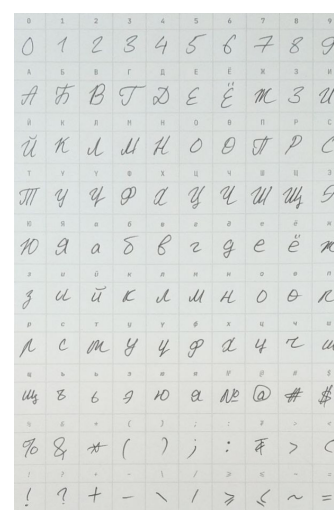 0 1 2 3 4 5 6 7 8 9
0 1 2 3 4 5 6 7 8 9
А Б В Г Д Е Ё Ж З И
А Б В Г Д Е Ё Ж З И
Й К Л М Н О Ө П Р С
Й К Л М Н О Ө П Р С
Т У Ү Ф Х Ц Ч Ш Щ Э
Т У Ү Ф Х Ц Ч Ш Щ Э
Ю Я а б в г д е ё ж
Ю Я а б в г д е ё ж
з и й к л м н о ө п
з и й к л м н о ө п
р с т у ү ф х ц ч ш
р с т у ү ф х ц ч ш
щ ъ ь э ю я № @ # $
щ ъ ь э ю я № @ # $
% & * ( ) ; : ₮ > <
% & * ( ) ; : ₮ > <
! ? + - \ / ≥ ≤ ~ =
! ? + - \ / ≥ ≤ ~ =